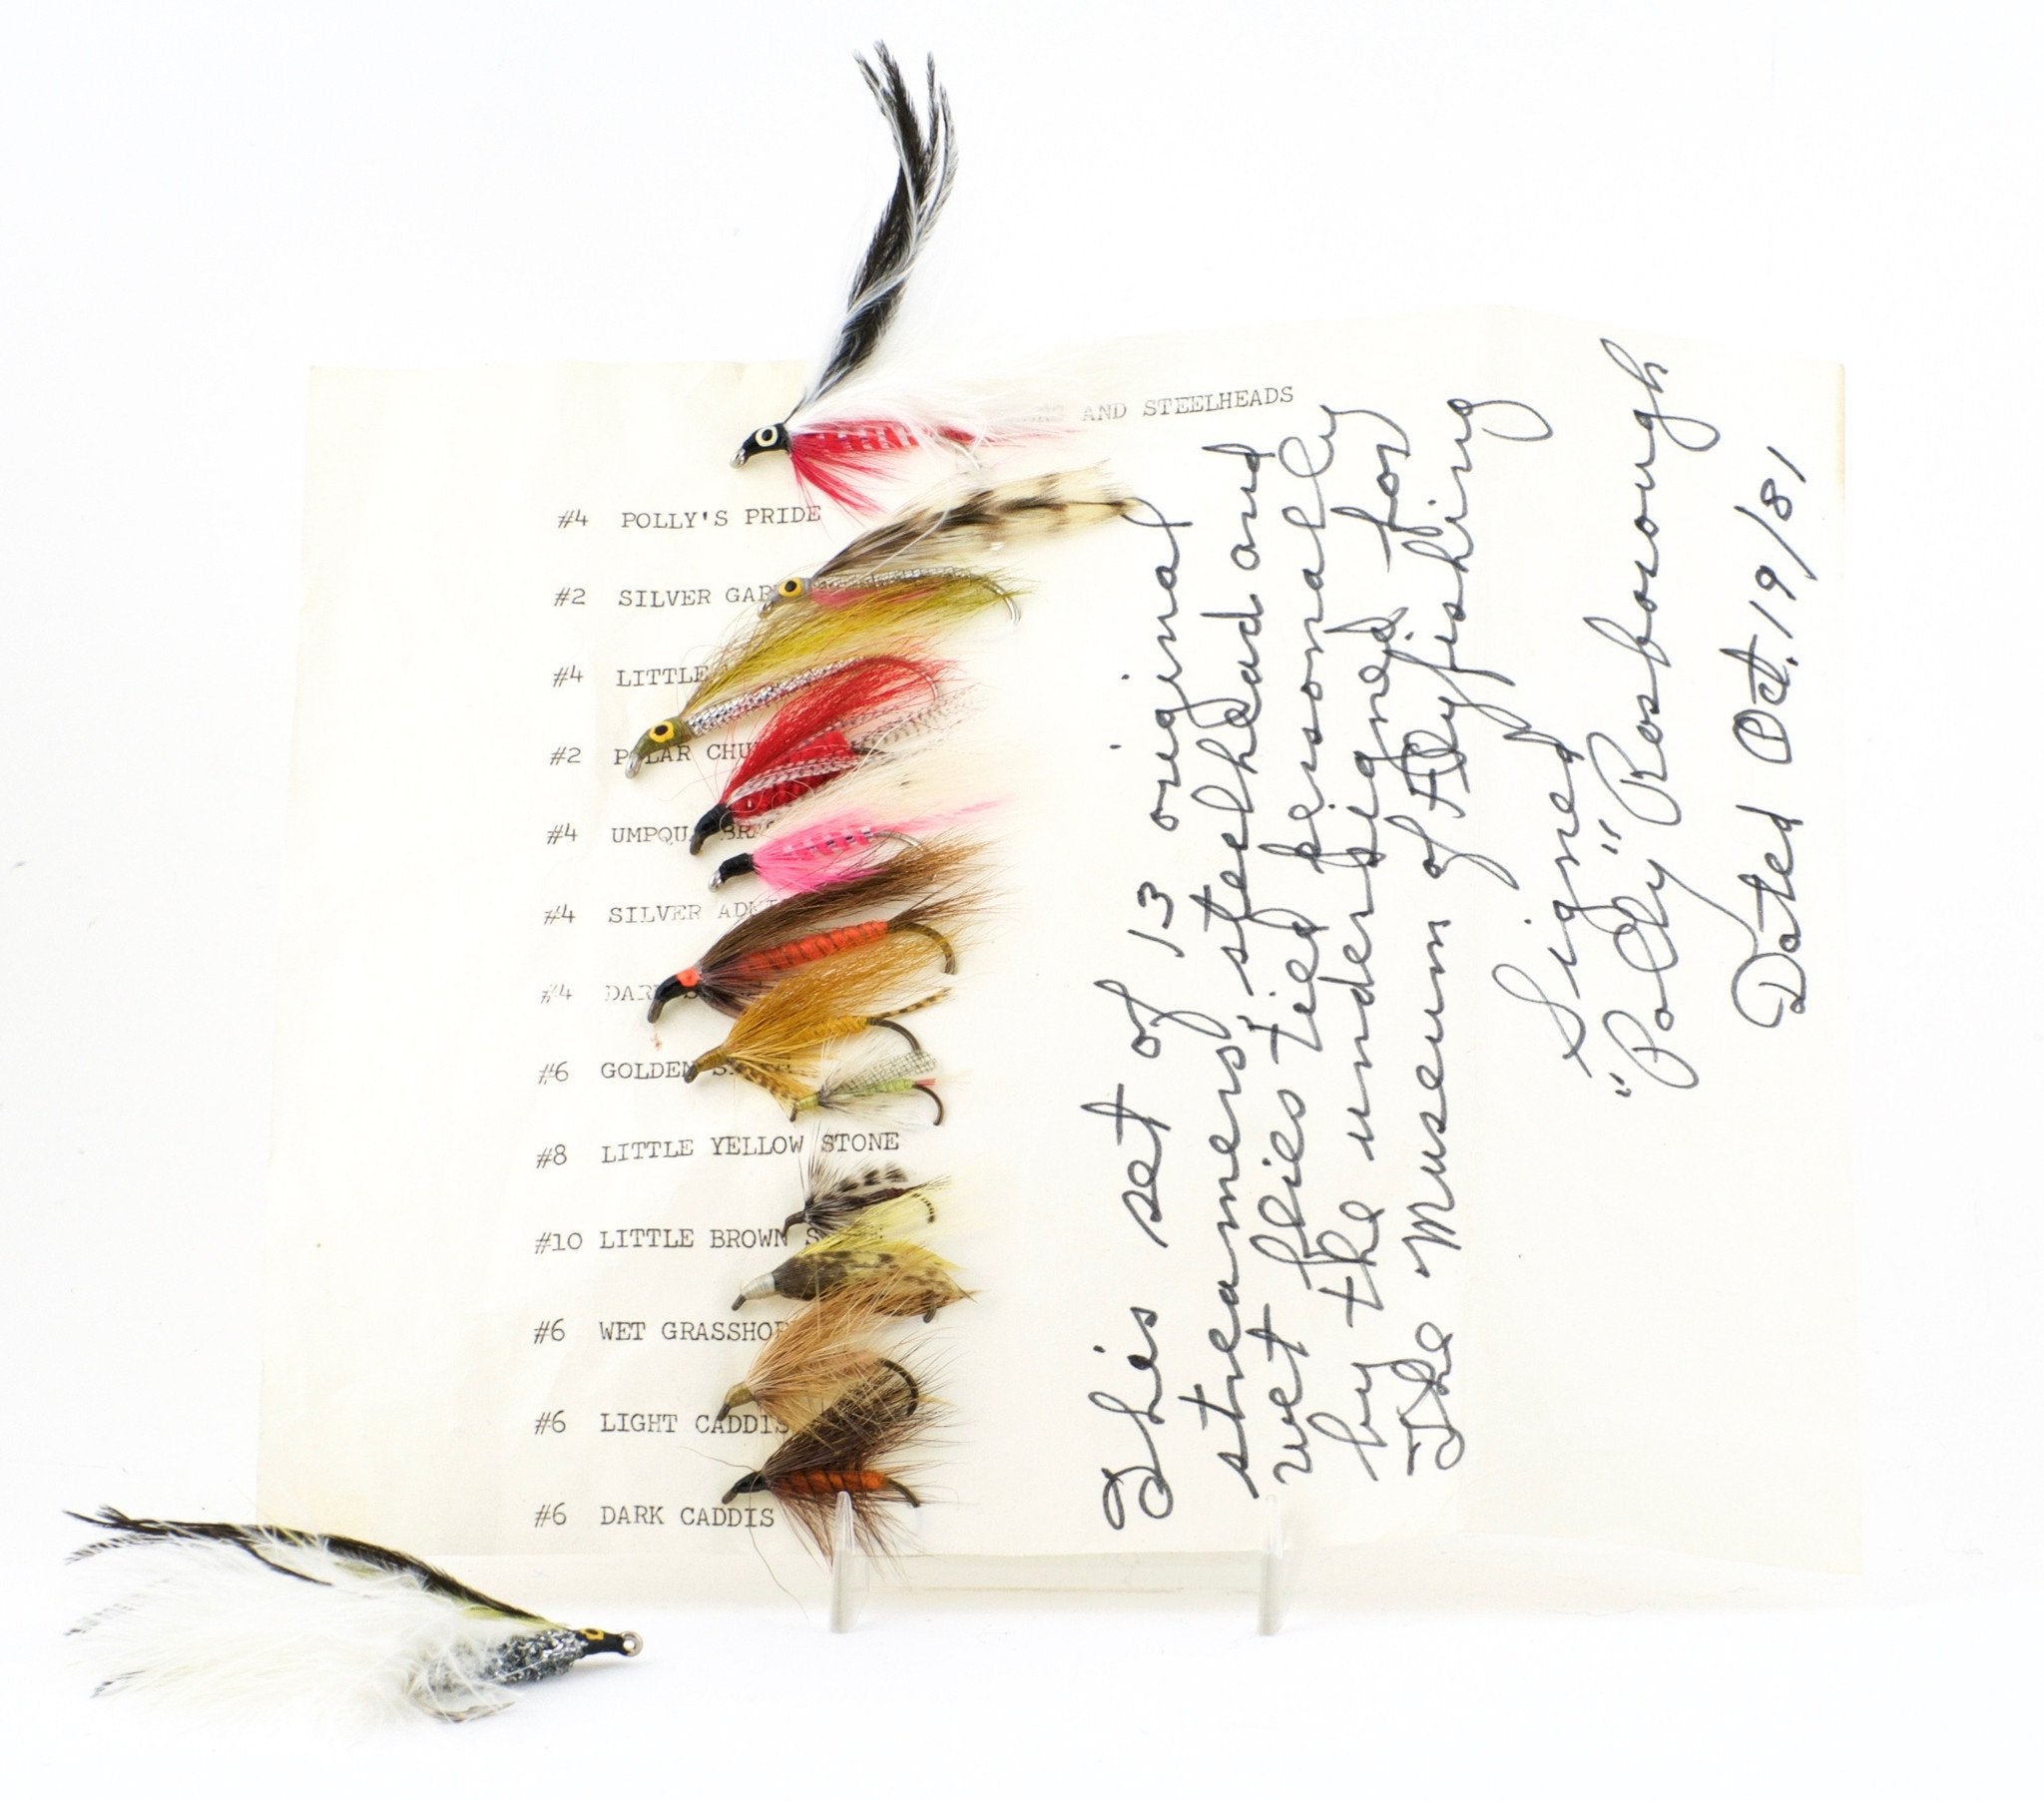 AND STEELHEADS
#4 POLLY'S PRIDE
#2 SILVER GAR
#4 LITTLE
#2 POLAR CHU
#4 UMPQUA
#4 SILVER
#4 DARK
#6 GOLDEN
#8 LITTLE YELLOW STONE
#10 LITTLE BROWN
#6 WET GRASSHOP
#6 LIGHT CADDIS
#6 DARK CADDIS
This set of 13 original
streamers, steelhead and
wet flies tied personally
by the undersigned for
The Museum of Flyfishing
Signed
"Polly" Rosborough
Dated Oct. 19/81